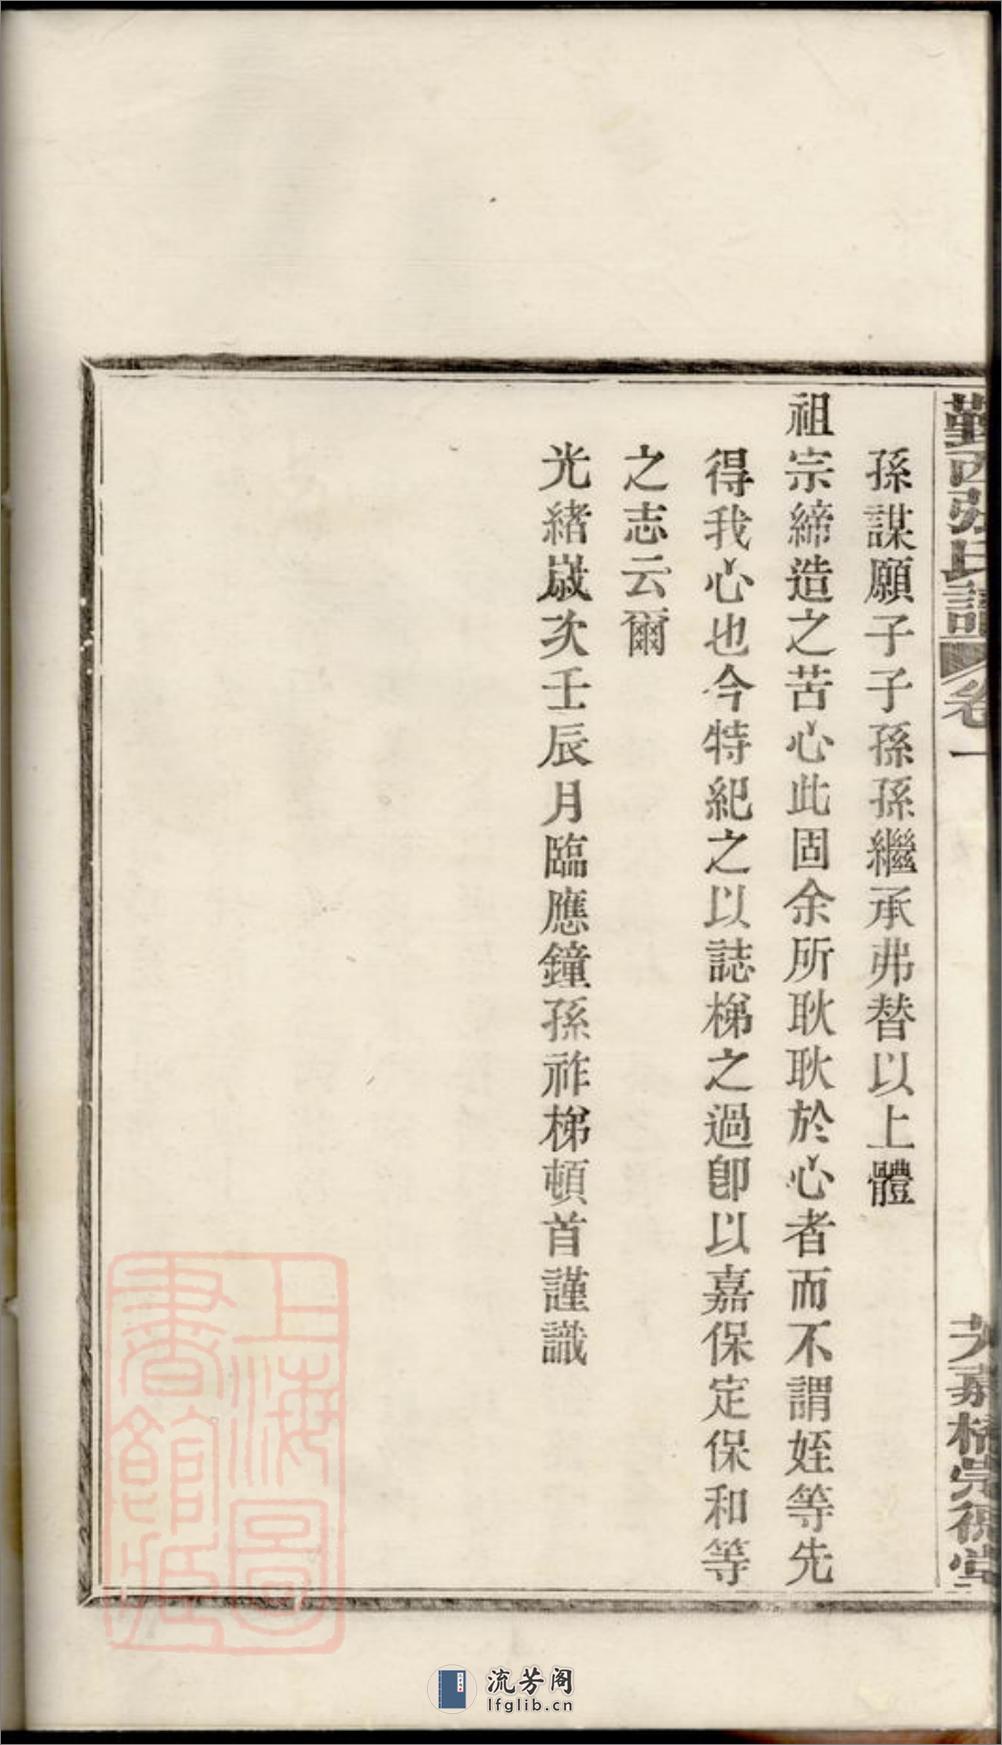 鄞西張氏譜 卷一
孫謀願子子孫孫繼承弗替以上體
祖宗締造之苦心此固余所耿耿於心者而不謂姪等先
得我心也今特紀之以誌梯之過卽以嘉保定保和等
之志云爾
光緒歲次壬辰月臨應鐘孫祚梯頓首謹識
上海圖
書館藏
流芳阁
lfglib.cn